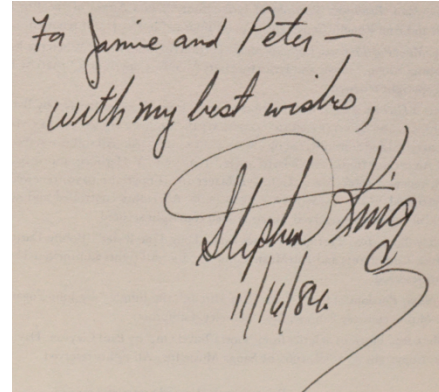 To Jamie and Peter —
with my best wishes,
Stephen King
11/16/86